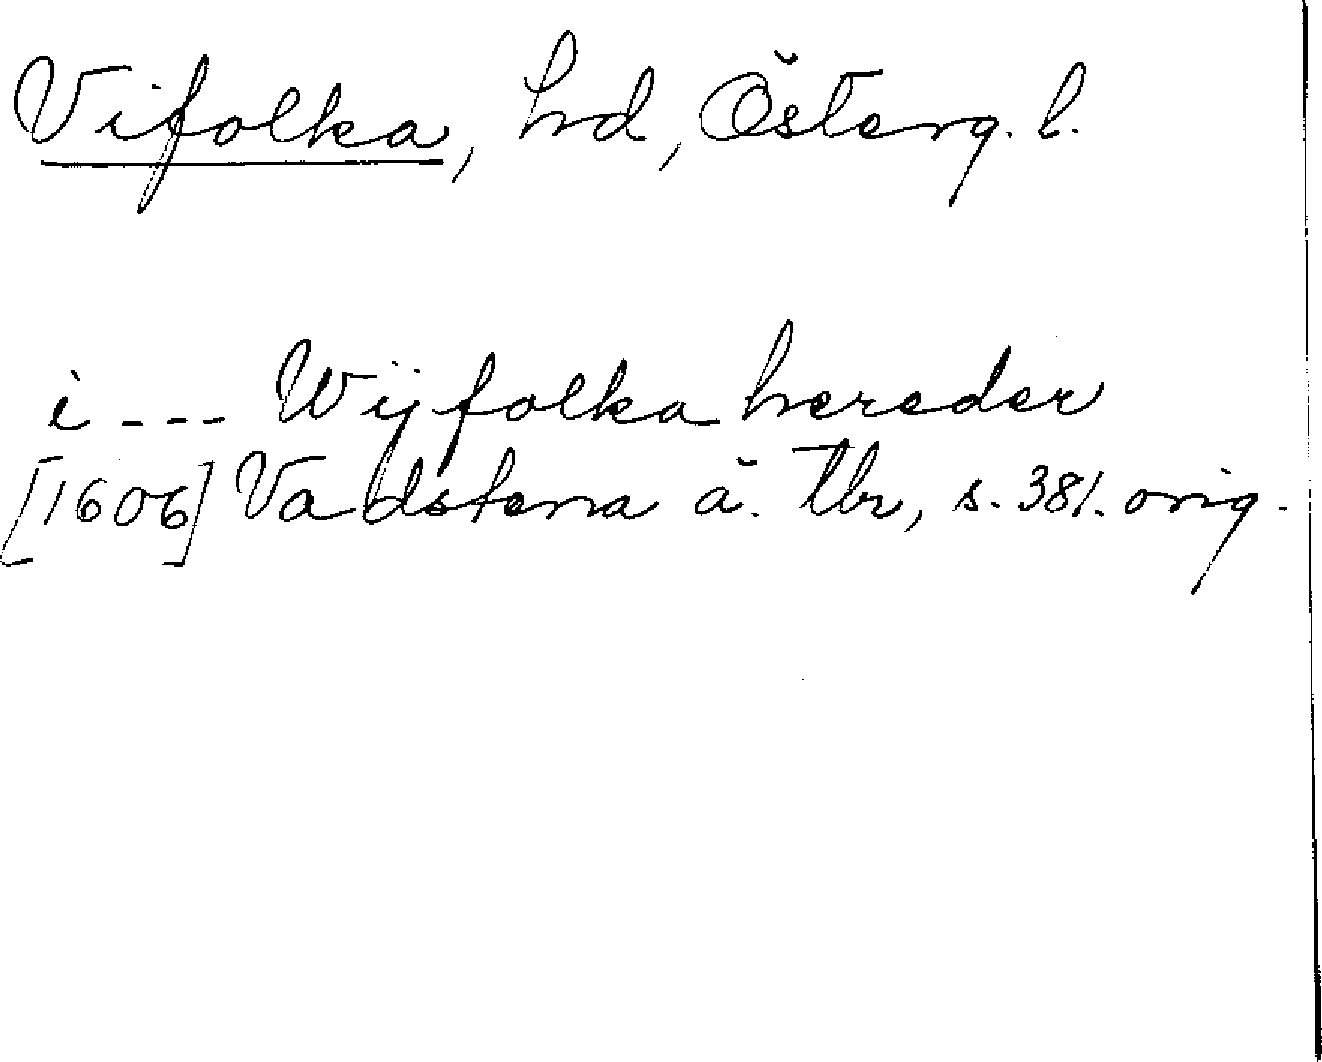 Vifolka, hd, Österg. l.
i --- Wijfolka hereder
[1606] Vadstena ä. tbr, s. 381. orig.